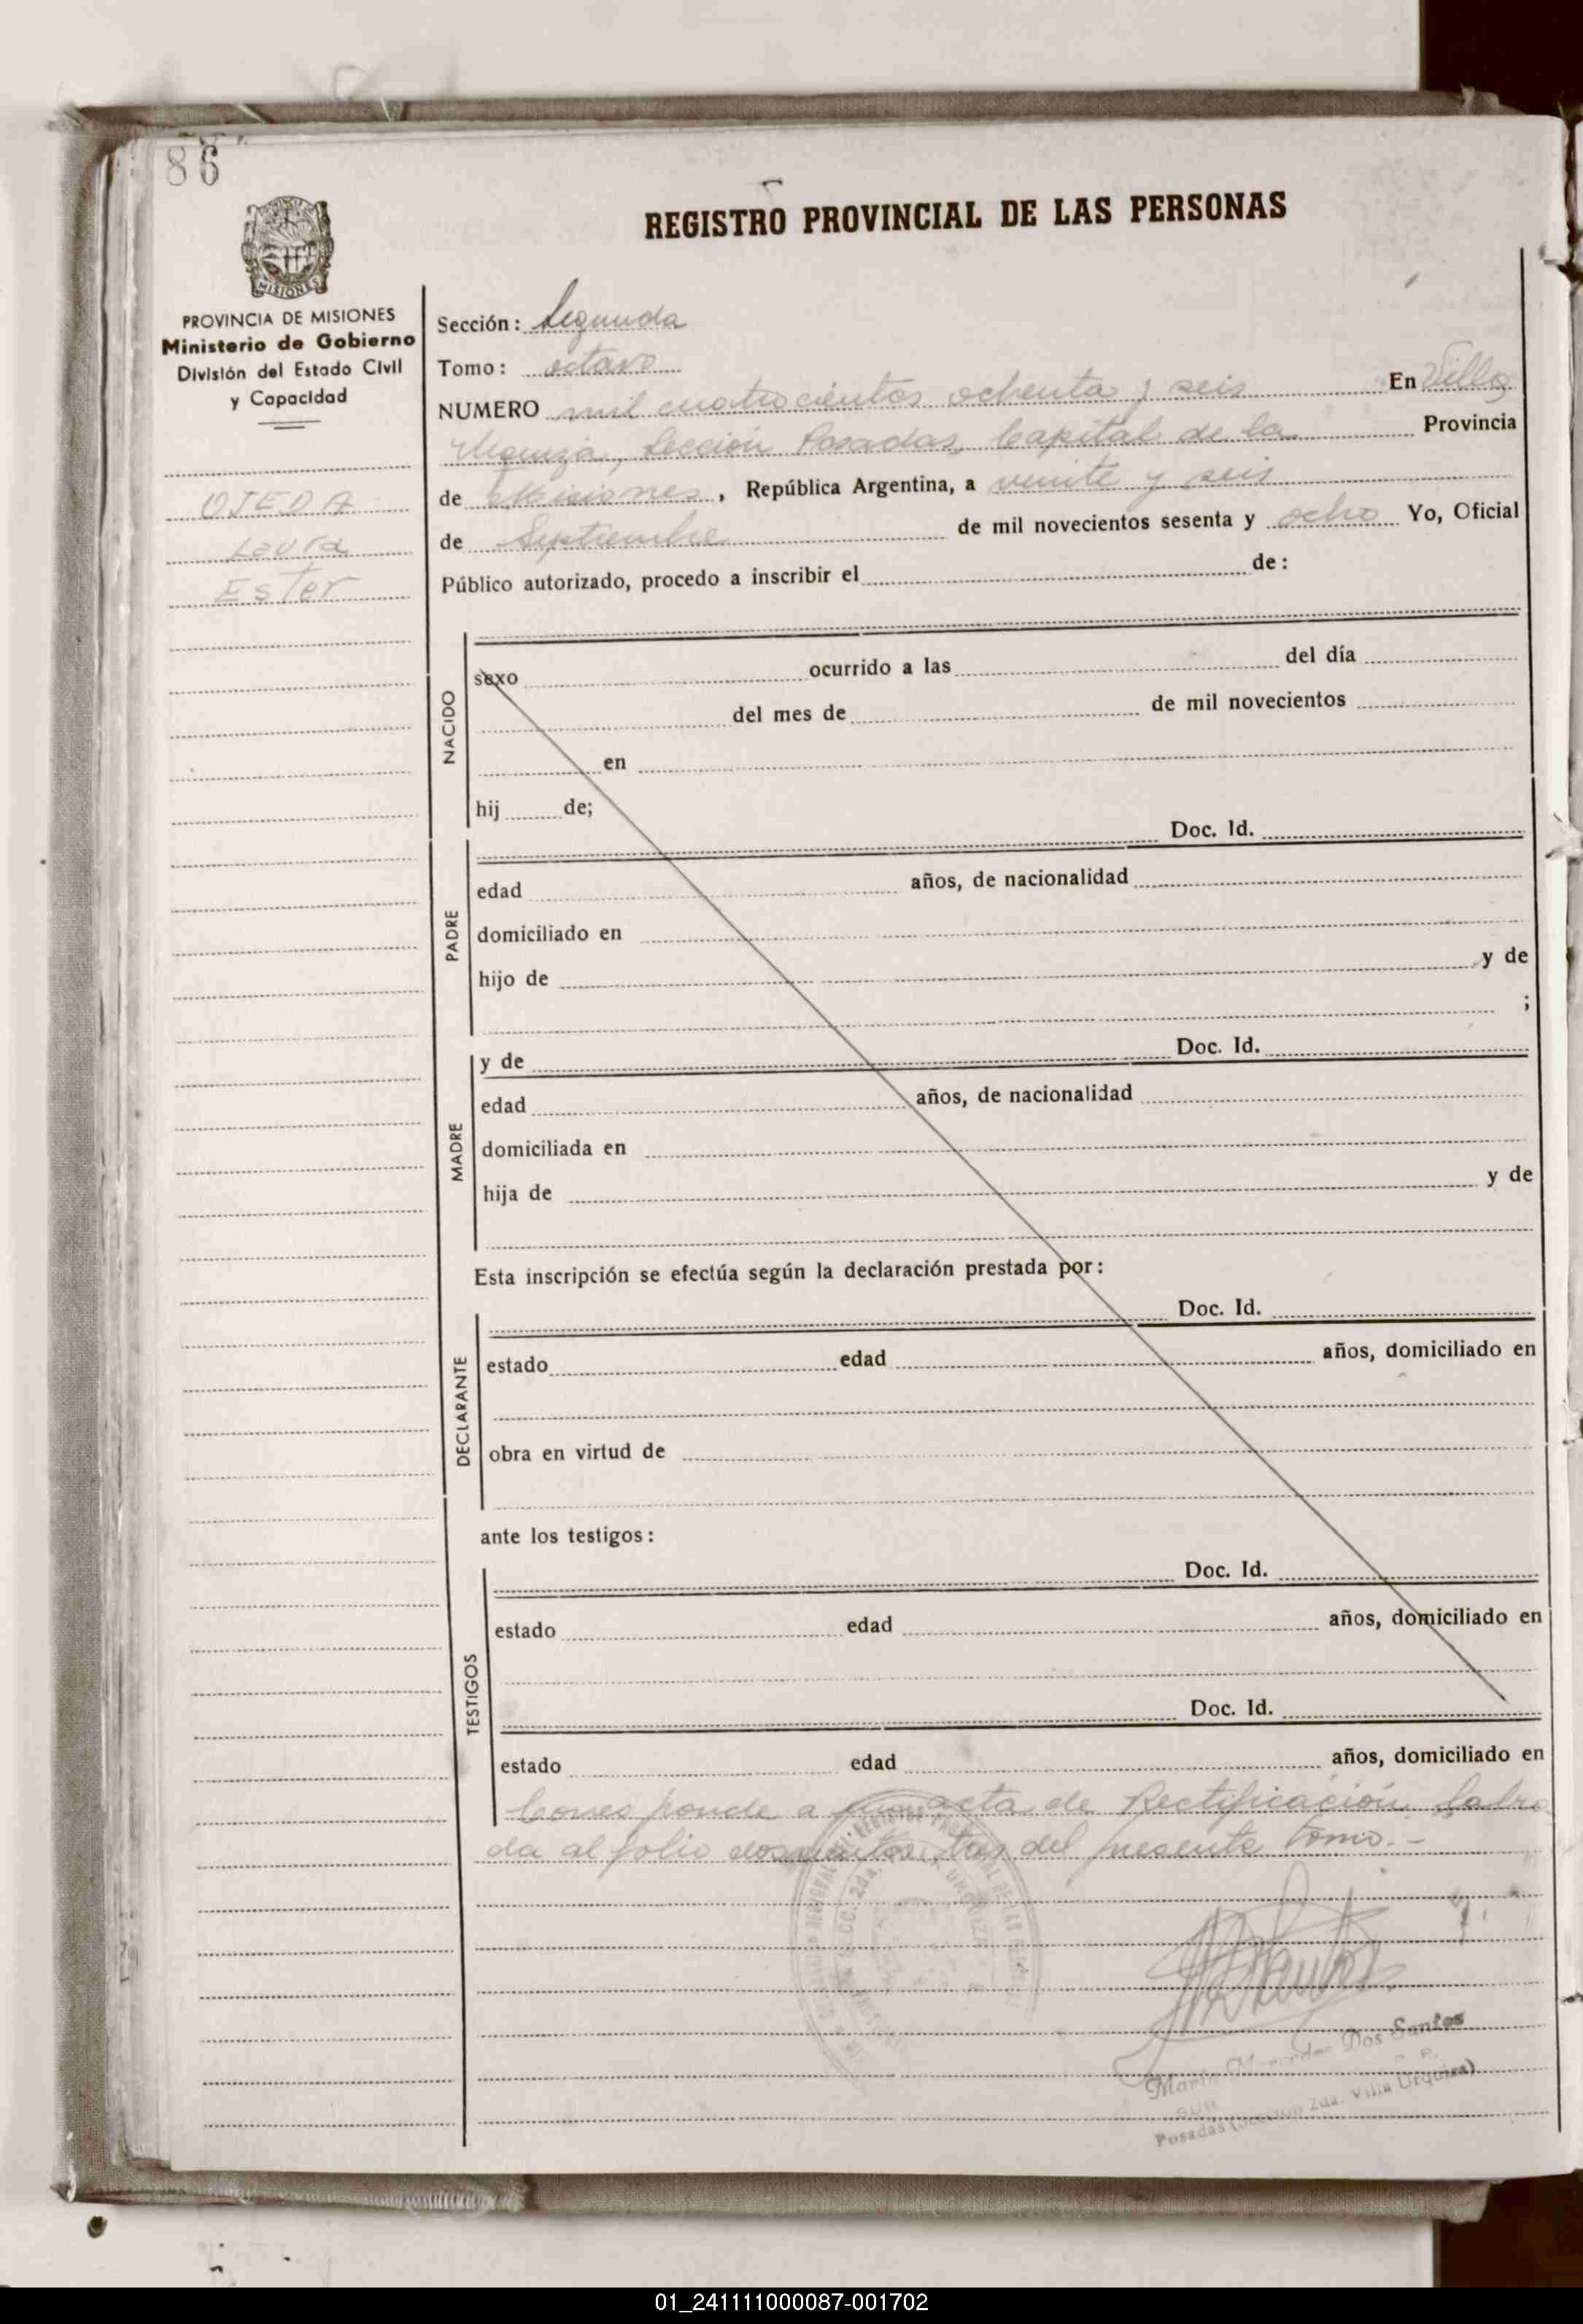 86
MISIONES
PROVINCIA DE MISIONES
Ministerio de Gobierno
División del Estado Civil
y Capacidad
OJEDA
Laura
Ester
REGISTRO PROVINCIAL DE LAS PERSONAS
Sección: Segunda
Tomo: octavo
NUMERO mil cuatrocientos ochenta y seis En Villa
Urquiza, Sección Posadas, Capital de la Provincia
de Misiones, República Argentina, a veinte y seis
de Septiembre de mil novecientos sesenta y ocho Yo, Oficial
Público autorizado, procedo a inscribir el de:
NACIDO
sexo ocurrido a las del día
del mes de de mil novecientos
en
hij de;
PADRE
Doc. Id.
edad años, de nacionalidad
domiciliado en
hijo de y de
;
MADRE
y de Doc. Id.
edad años, de nacionalidad
domiciliada en
hija de y de
Esta inscripción se efectúa según la declaración prestada por:
DECLARANTE
Doc. Id.
estado edad años, domiciliado en
obra en virtud de
ante los testigos:
TESTIGOS
Doc. Id.
estado edad años, domiciliado en
Doc. Id.
estado edad años, domiciliado en
Corresponde a acta de Rectificación labra
da al folio del presente tomo.-
Dos Santos
Posadas (Sección 2da. Villa Urquiza)
01_241111000087-001702